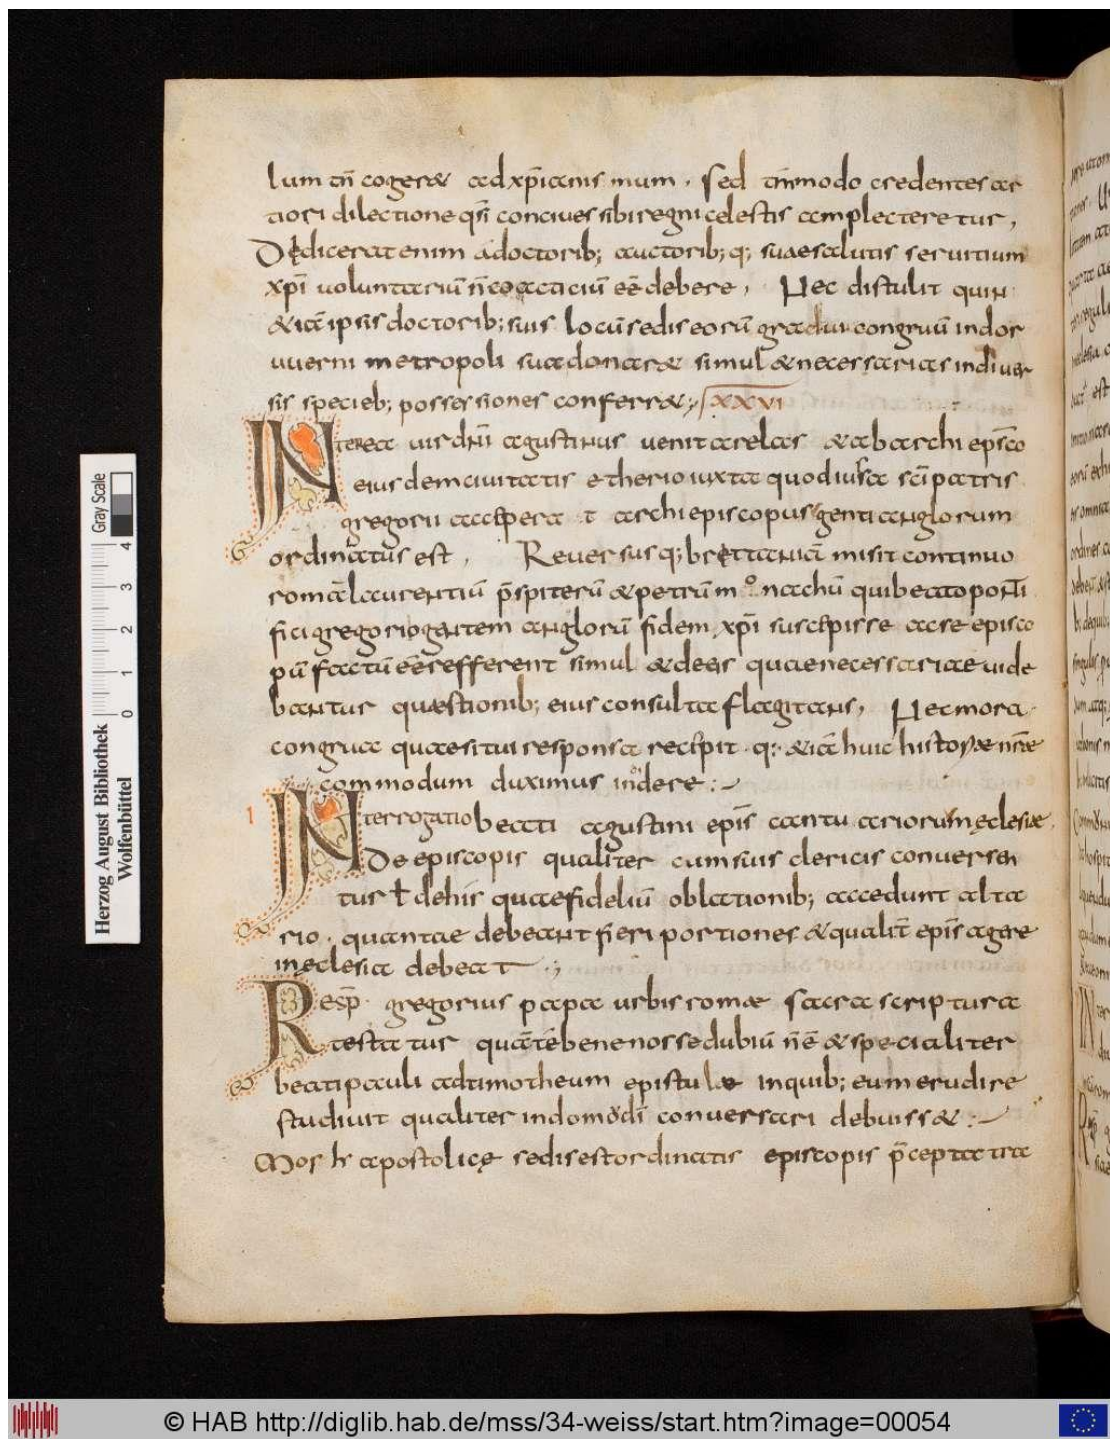 lum tn̄ cogeret ad xp̄ianis mum. sed tm̄modo credentes ar
tiori dilectione qsī concives sibi regni celestis amplectere tur,
Didicerat enim a doctorib; auctorib; q; suae salutis servitium
xpī voluntariū n̄ coacticiū eē debere, Nec distulit quin
& iā ipsis doctorib; suis locū sedis eorū gradui congruū in dor
uuerni metropoli sua donaret simul & necessarias in diuer
sis specieb; possessiones conferret; XXVI
INterea uir dn̄i agustinus venit arelas & ab archi epīsco
eiusdem civitatis etherio iuxta quod iussa scī patris
gregorii acceperat archiepiscopus genti anglorum
ordinatus est, Reversusq; brettaniā misit continuo
romā laurentiū p̄sbiterū & petrum monachū qui beato ponti
fici gregorio gentem anglorū fidem xpī suscepisse ac se episco
pū factū eē refferent simul & de eis quae necessariae vide
bantur quaestionib; eius consulta flagitans, Nec mora
congrua quaesitui responsa recepit. q; & iā huic historiae nr̄ae
commodum duximus indere:
1 INterrogatio beati agustini epīs cantuariorum ęclesiae.
De episcopis qualiter cum suis clericis conversen
tur ł de his quae fideliū oblationib; accedunt alta
rio. quantae debeant fieri portiones & qualit̄ epīs agere
in ęclesia debeat;
Resp̄. gregorius papa urbis romae sacra scriptura
testatur quā tē bene nosse dubiū n̄ ē & specialiter
beati pauli ad timotheum epistulae in quib; eum erudire
studiuit qualiter in domo dī conversari debuisset:
Mos h̄ apostolicę sedis est ordinatis episcopis p̄cepta tra
Herzog August Bibliothek
Wolfenbüttel
0 1 2 3 4
Gray Scale
© HAB http://diglib.hab.de/mss/34-weiss/start.htm?image=00054